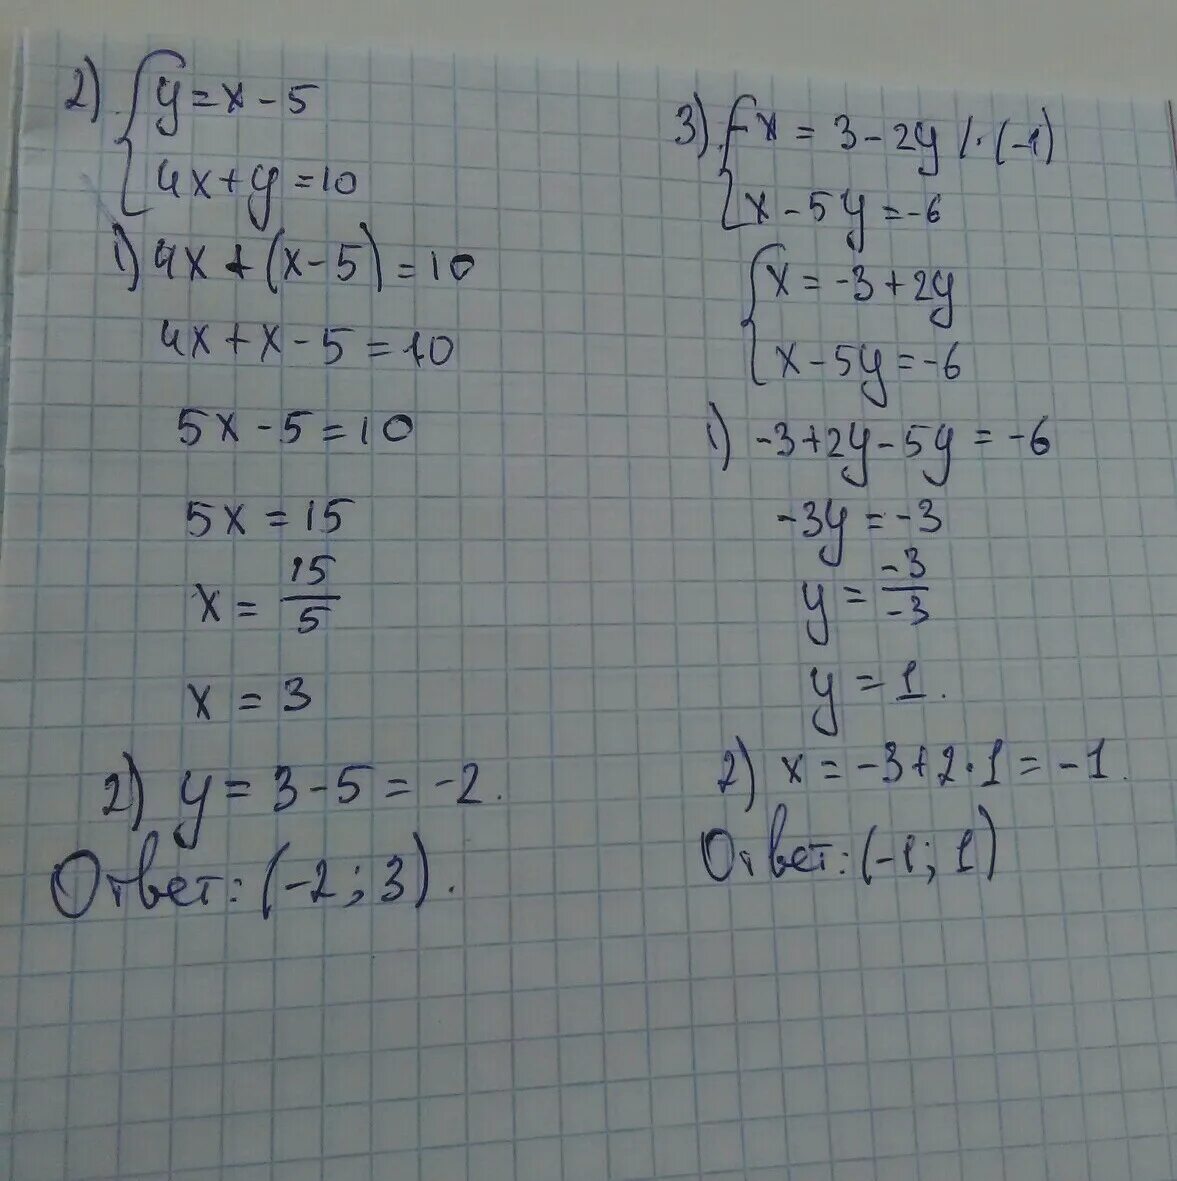 2) { y = x - 5
4x + y = 10
1) 4x + (x - 5) = 10
4x + x - 5 = 10
5x - 5 = 10
5x = 15
x = 15/5
x = 3
2) y = 3 - 5 = -2.
Ответ: (-2; 3).
3) { -x = 3 - 2y /·(-1)
x - 5y = -6
{ x = -3 + 2y
x - 5y = -6
1) -3 + 2y - 5y = -6
-3y = -3
y = -3/-3
y = 1.
2) x = -3 + 2·1 = -1.
Ответ: (-1; 1)